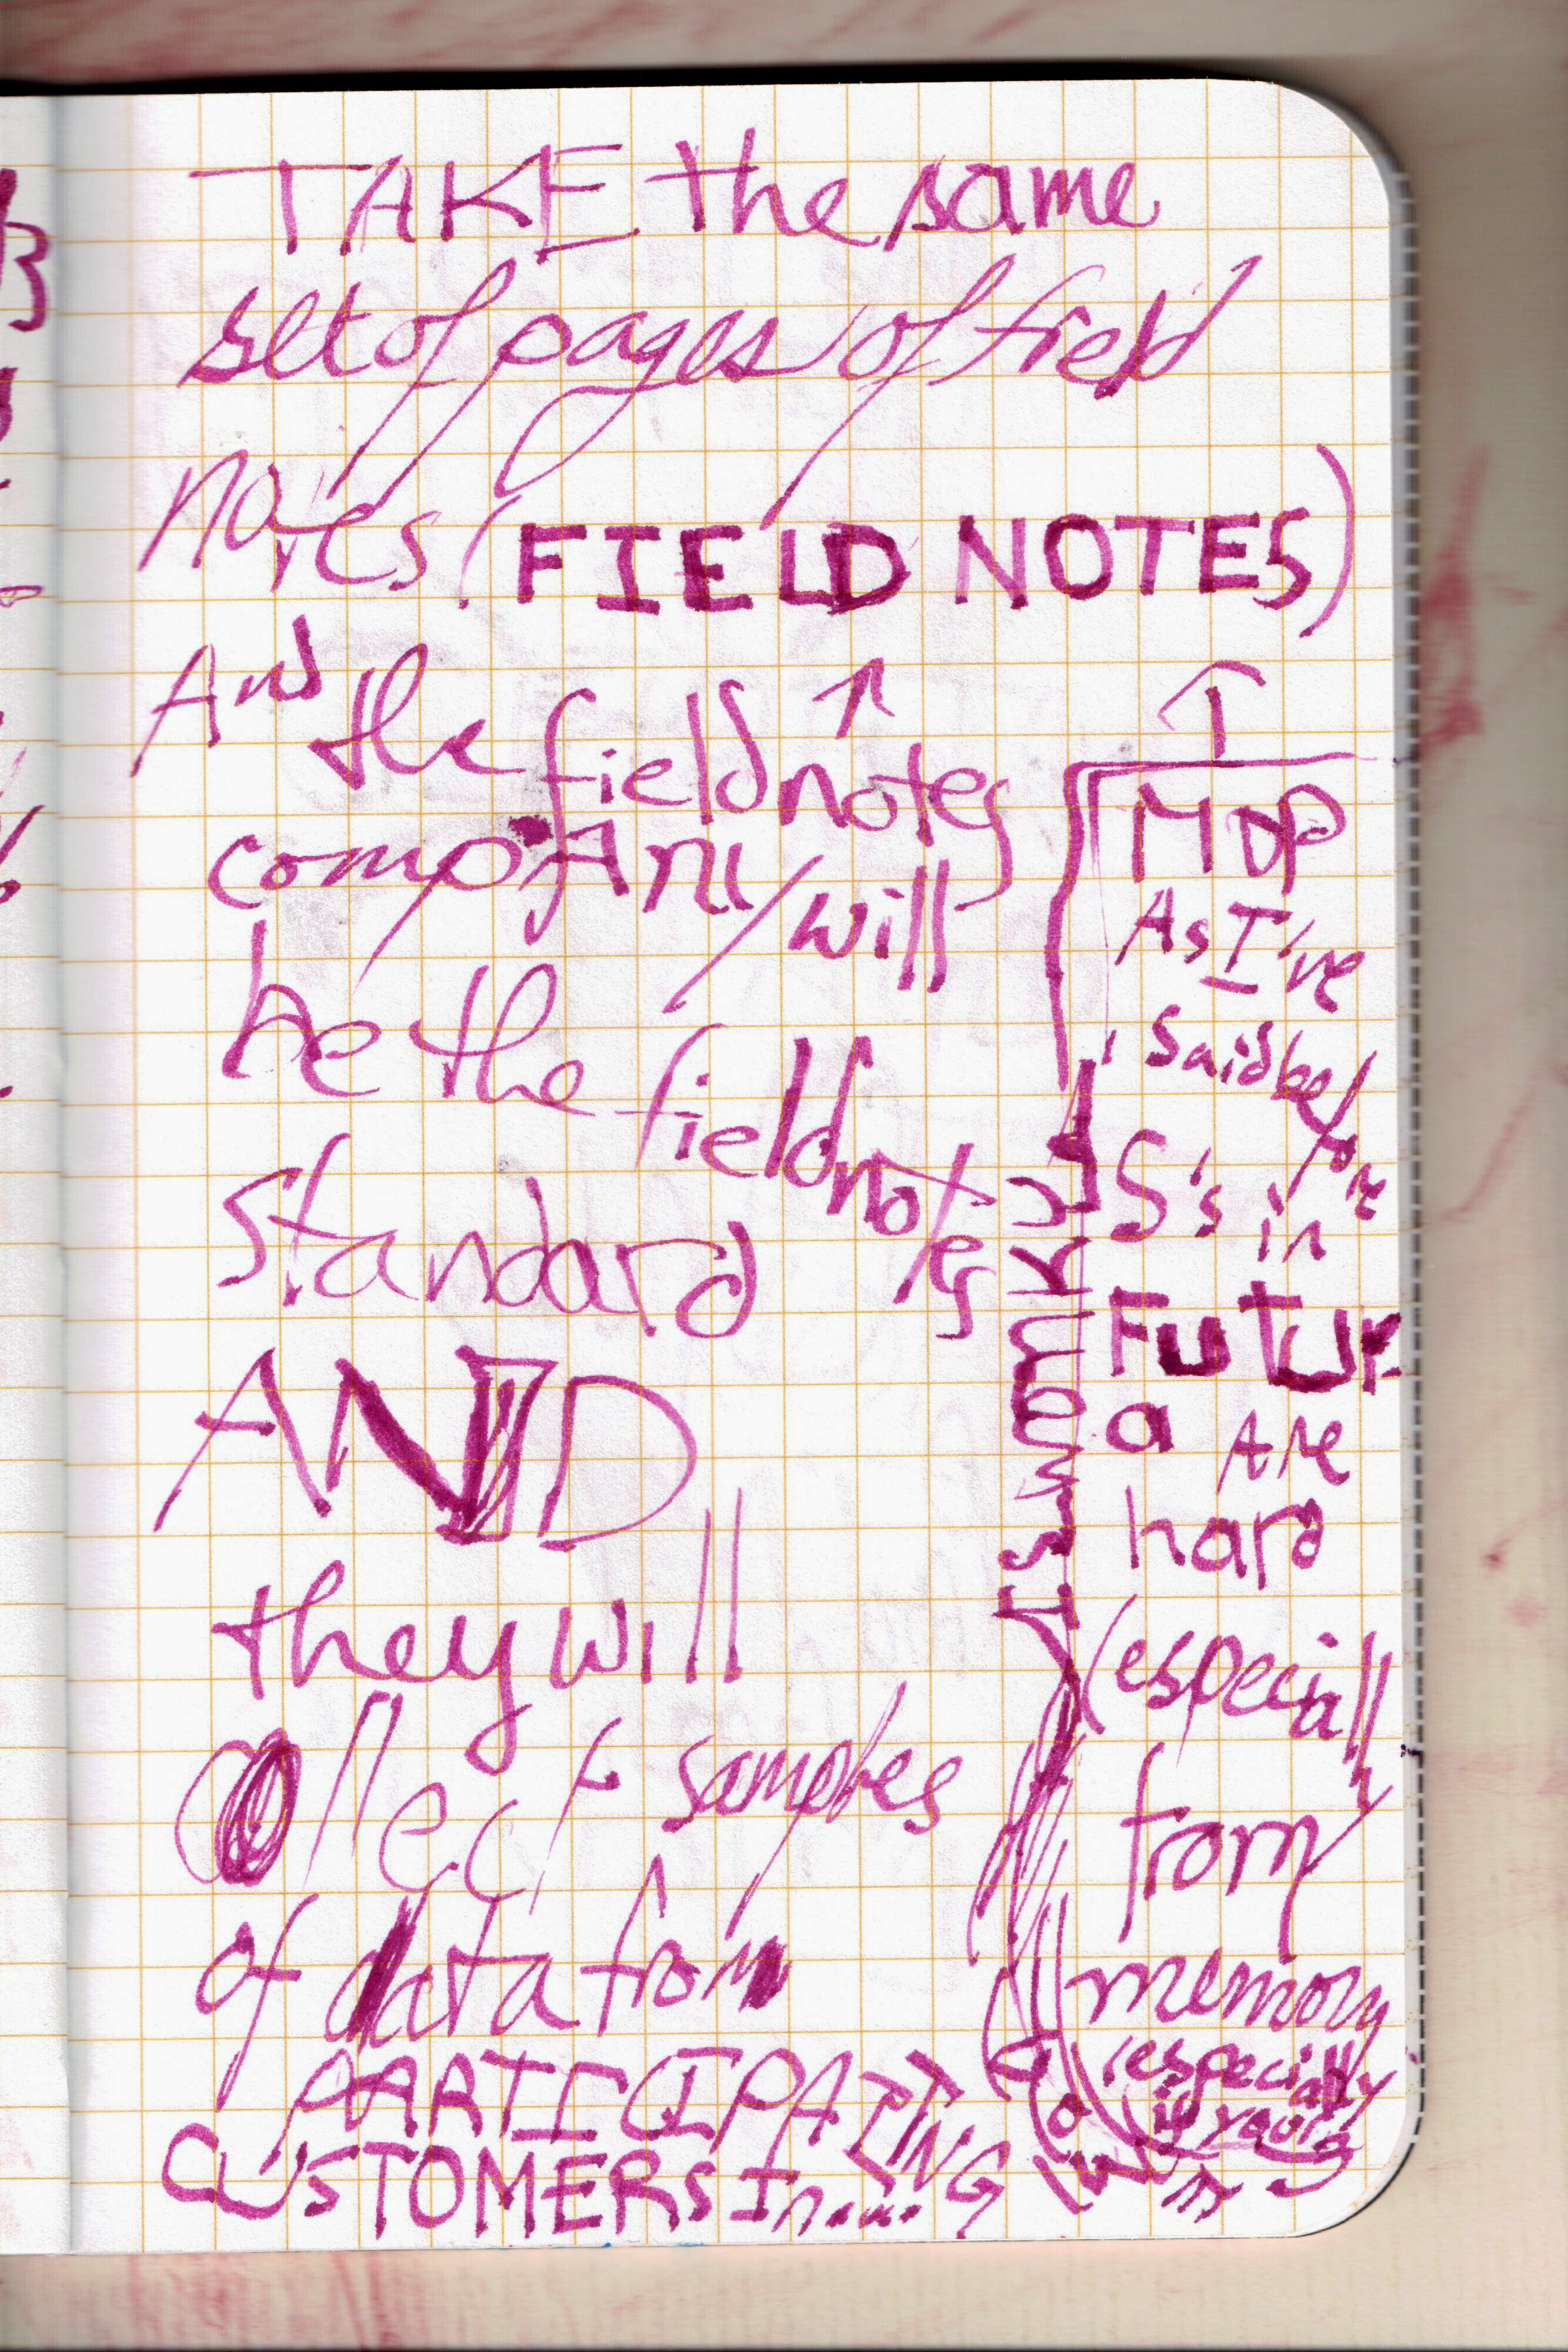 TAKE the same
set of pages of field
notes (FIELD NOTES)
And the fieldnotes
company will
be the fieldnotes
standard
AND
they will
collect samples
of data from
PARTICIPATING
CUSTOMERS In.....
As I've
said before
S's in
Futura
Are
hard
(especially
from
memory
(especially
if you're
I swear